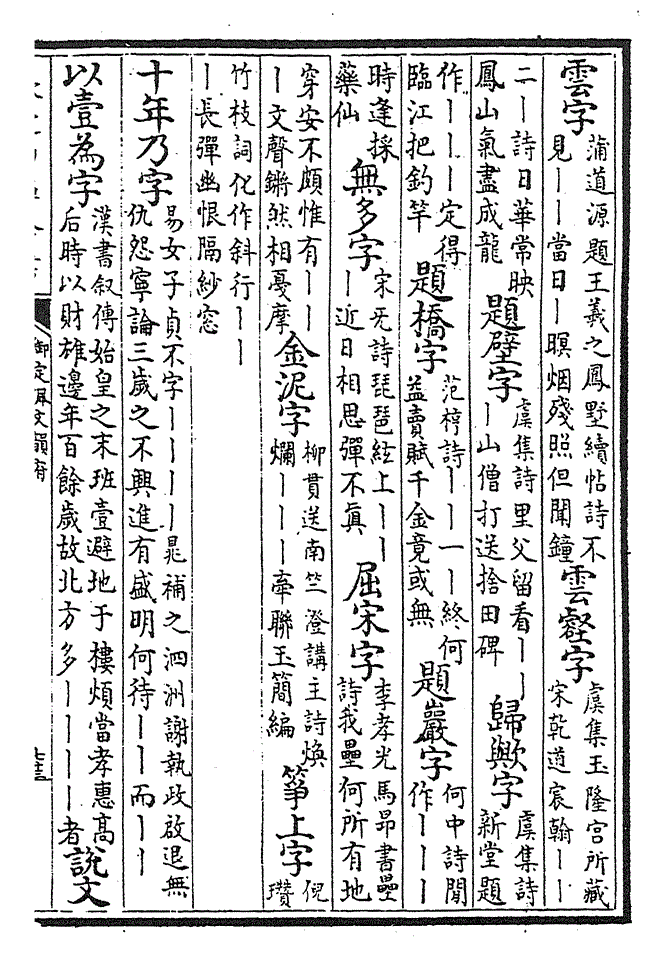 雲字 蒲道源題王羲之鳳墅續帖詩不
見丨丨當日丨暝烟殘照但聞鐘 雲壑字 虞集玉隆宮所藏
宋乾道宸翰丨丨
二丨詩日華常映
鳳山氣盡成龍 題壁字 虞集詩里父留看丨丨
丨山僧打送捨田碑 歸歟字 虞集詩
新堂題
作丨丨丨定得
臨江把釣竿 題橋字 范梈詩丨丨一丨終何
益賣賦千金竟或無 題巖字 何中詩閒
作丨丨丨
時逢採
藥仙 無多字 宋旡詩琵琶絃上丨丨
丨近日相思彈不真 屈宋字 李孝光馬昂書壘
詩我壘何所有地
穿安不頗惟有丨丨
丨文聲鏘然相戞摩 金泥字 柳貫送南竺澄講主詩煥
爛丨丨丨牽聯玉簡編 箏上字 倪
瓚
竹枝詞化作斜行丨丨
丨長彈幽恨隔紗窓
十年乃字 易女子貞不字丨丨丨丨晁補之泗洲謝執政啟退無
仇怨寧論三歲之不興進有盛明何待丨丨而丨丨
以壹為字 漢書叙傳始皇之末班壹避地于樓煩當孝惠高
后時以財雄邊年百餘歲故北方多丨丨丨丨者 說文
御定佩文韻府